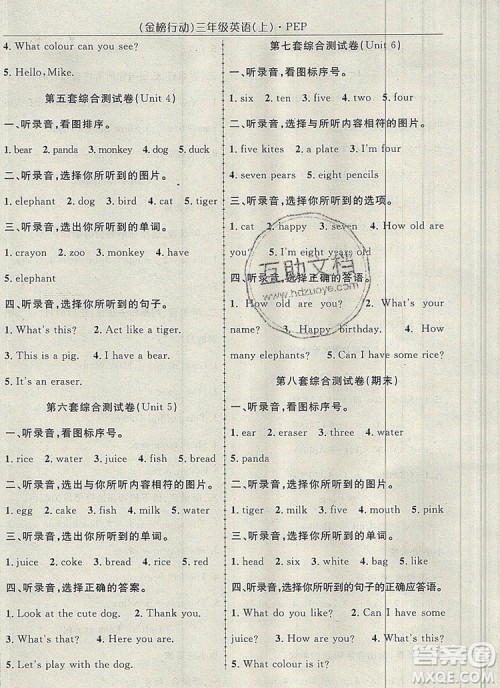 (金榜行动)三年级英语(上)·PEP
4. What colour can you see?
5. Hello, Mike.
第五套综合测试卷(Unit 4)
一、听录音,看图排序。
1. bear 2. panda 3. monkey 4. dog 5. duck
二、听录音,选择你所听到的图片。
1. elephant 2. dog 3. bird 4. cat 5. tiger
三、听录音,选出你所听到的单词。
1. crayon 2. zoo 3. monkey 4. cat
5. elephant
四、听录音,选择你所听到的句子。
1. What's this? 2. Act like a tiger.
3. This is a pig. 4. I have a duck.
5. It's an eraser.
第六套综合测试卷(Unit 5)
一、听录音,看图标序号。
1. rice 2. water 3. juice 4. fish 5. bread
二、听录音,选出与你所听内容相符的图片。
1. egg 2. cake 3. milk 4. bread 5. fish
三、听录音,选择你所听到的单词。
1. cake 2. milk 3. juice 4. fish 5. bread
四、听录音,选择正确的答案。
1. Look at the cute dog. 2. What's this?
3. What's that? 4. Here you are.
5. Let's play with the dog.
第七套综合测试卷(Unit 6)
一、听录音,看图标序号。
1. six 2. ten 3. nine 4. one 5. five
二、听录音,选择与所听内容相符的图片。
1. five kites 2. a plate 3. I'm four
4. seven pears 5. eight pencils
三、听录音,选择你所听到的选项。
1. cat 2. seven 3. six 4. How old are
you? 5. I'm eight years old.
四、听录音,选择正确的答语。
1. How old are you? 2. What's your
name? 3. Happy birthday. 4. How
many elephants? 5. Can I have some rice?
第八套综合测试卷(期末)
一、听录音,看图标序号。
1. ear 2. eraser 3. white 4. two
5. panda
二、听录音,选出与你所听内容相符的图片。
1. bird 2. cake 3. juice 4. nine 5. red
三、听录音,选择你所听到的单词。
1. head 2. six 3. white 4. this 5. mouth
四、听录音,选择你所听到的句子的正确应答语。
1. What do you like? 2. What's this?
3. Have some bread. 4. How are you?
5. What colour is it?
互助文档
www.hdzuoye.com
作业帮答案
MXQE.COM